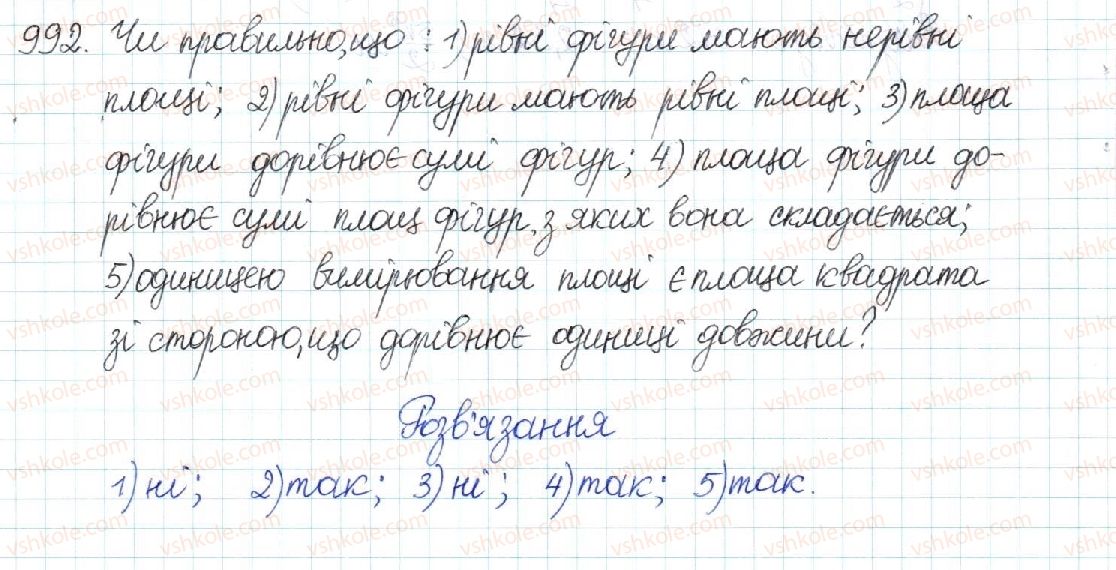 992. Чи правильно, що : 1) рівні фігури мають нерівні
площі; 2) рівні фігури мають рівні площі; 3) площа
фігури дорівнює сумі фігур; 4) площа фігури до-
рівнює сумі площ фігур, з яких вона складається;
5) одиницею вимірювання площі є площа квадрата
зі стороною, що дорівнює одиниці довжини?
Розв'язання
1) ні; 2) так; 3) ні; 4) так; 5) так.